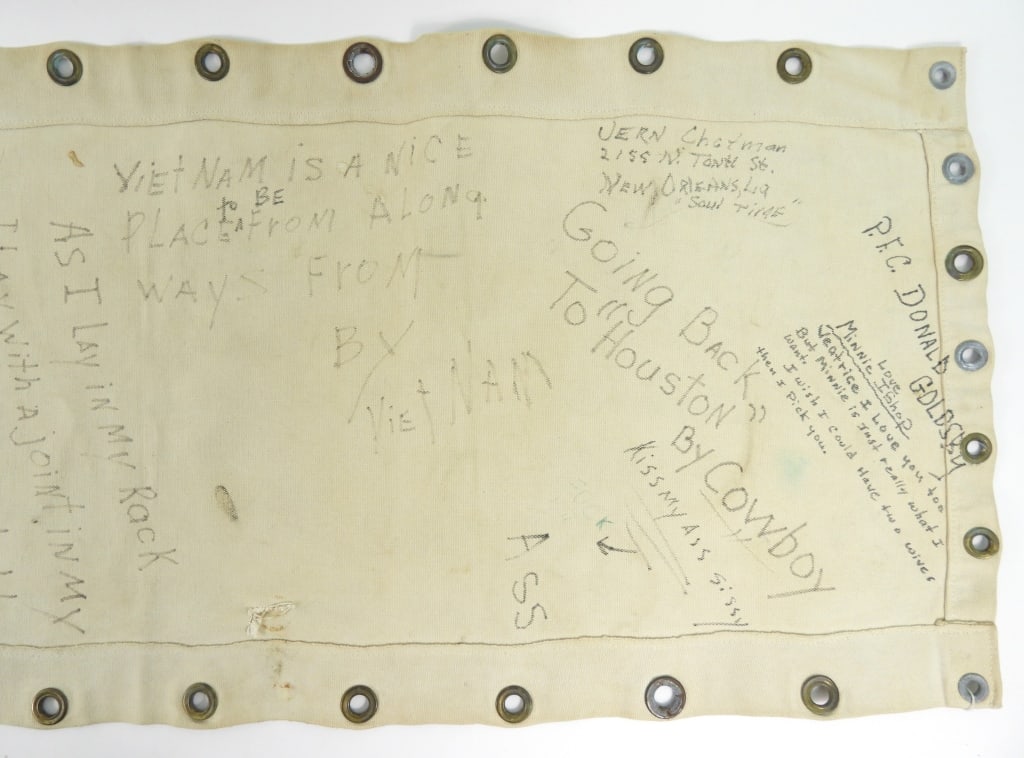 VIEtNAM iS A NiCE
to BE
PLACE FROM ALONG
WAYS FROM
BY
VIEt NAM
AS I LAY iN MY RACK
WITH A JOiNT iN MY
VERN Chatman
2155 N. Tonti St.
NEW ORLEANS, La
"Soul TiME"
GOiNG BACK
TO "HOUSTON"
BY COWboy
KiSS MY ASS SiSSY
ASS
P.F.C. DONALD GOLDSBY
MiNNiE LOVE
Beatrice I Love you too
But Minnie is Just really what I
want. I wish I could Have two wives
then I Pick you.